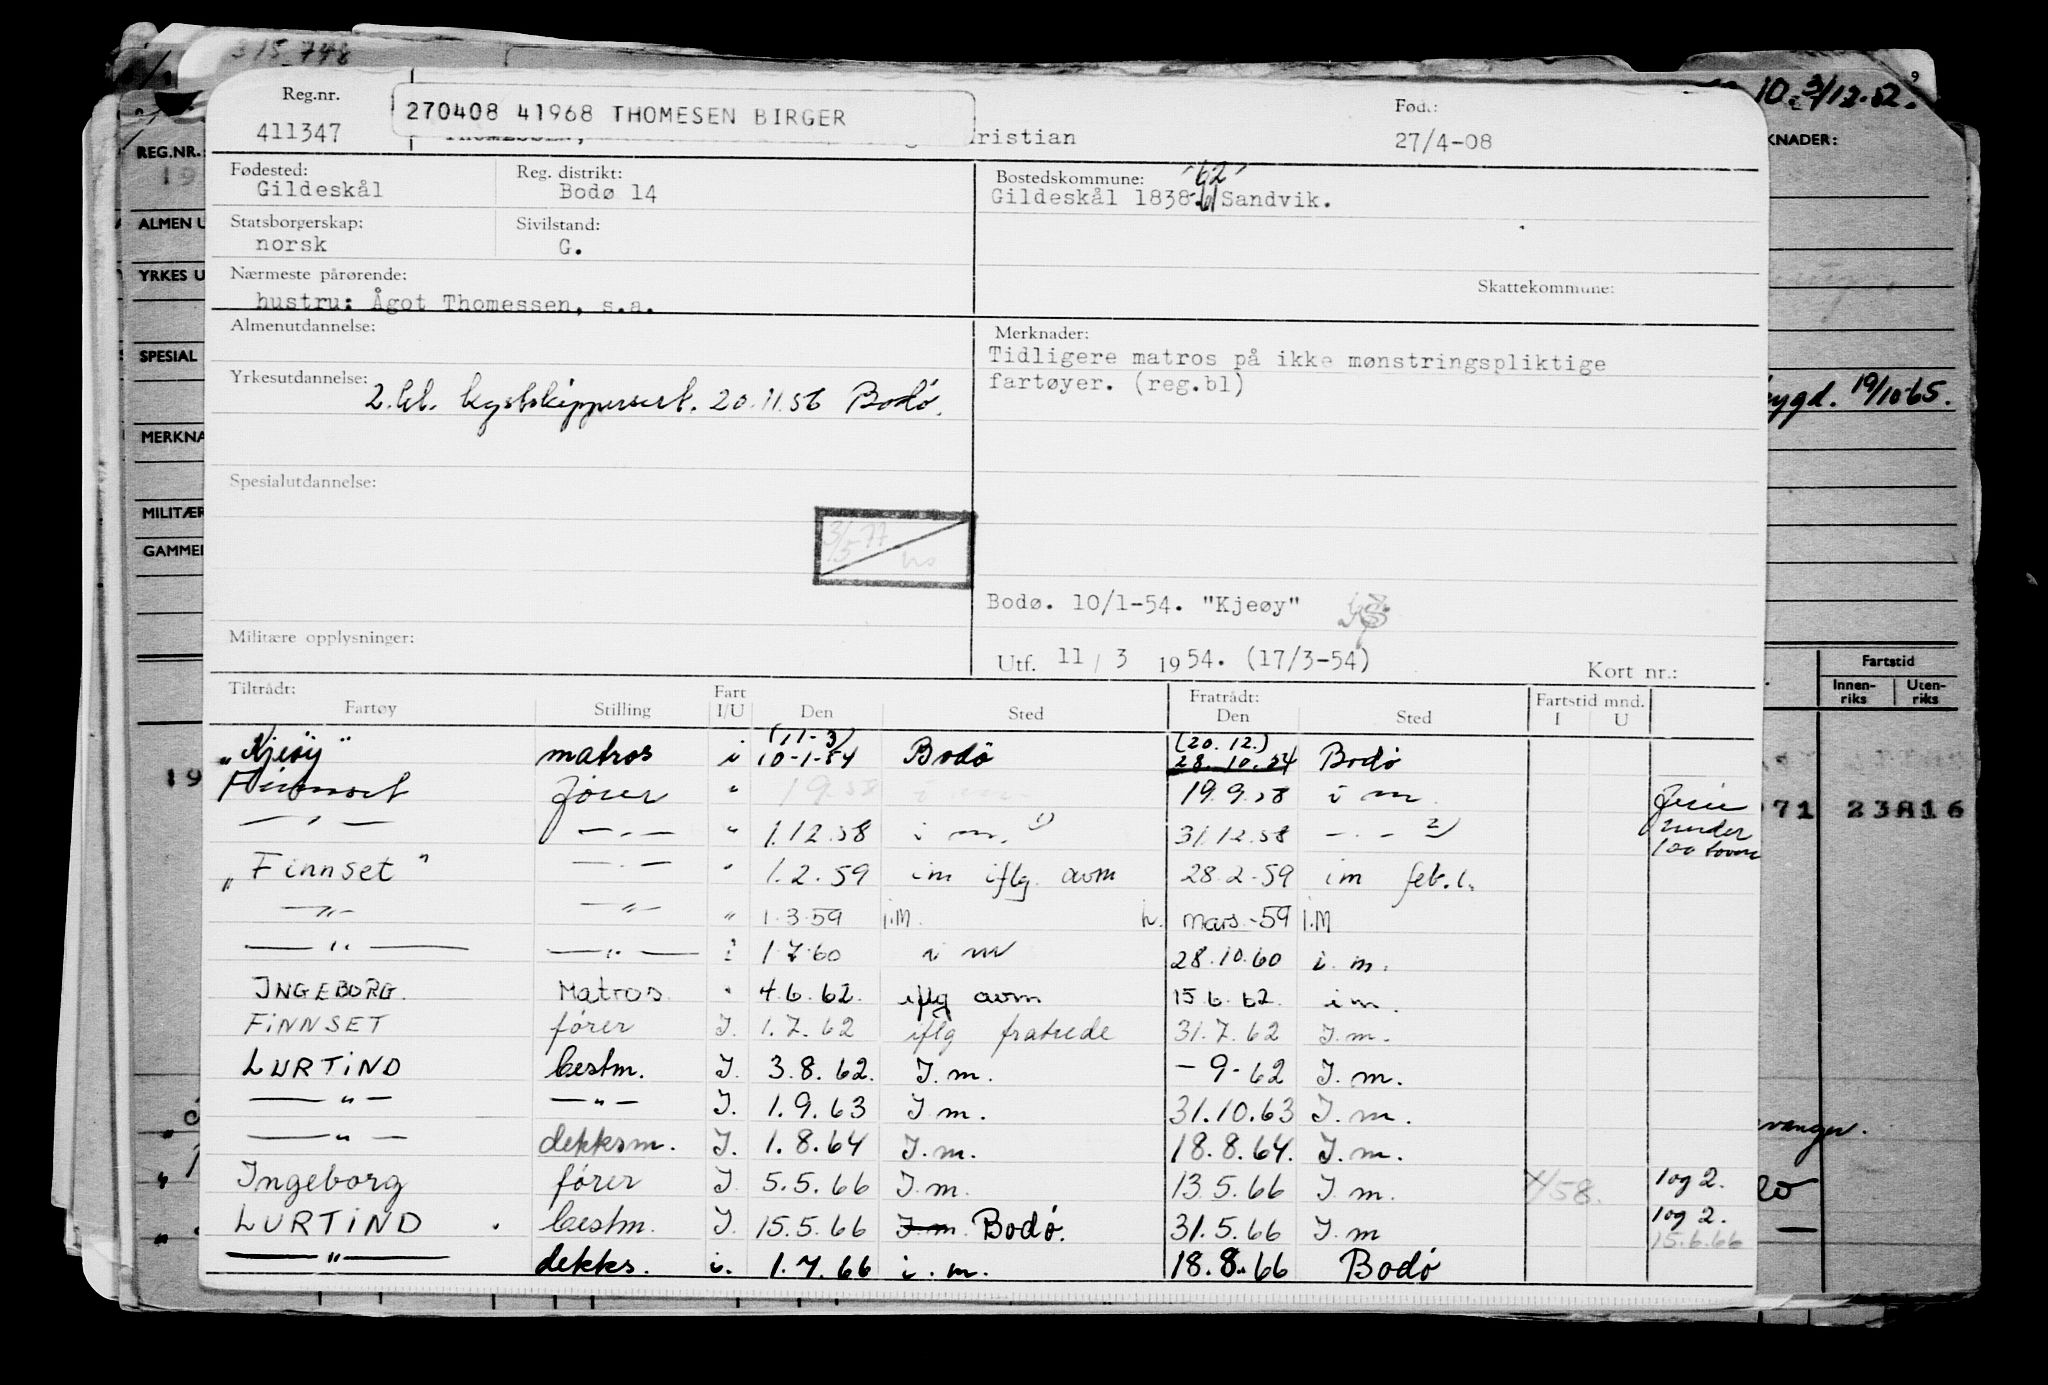 315748
10 3/12.52.
9
Reg.nr.
270408 41968 THOMESEN BIRGER
Født:
411347
ristian
27/4-08
REG.NR.
KNADER:
Fødested:
Reg. distrikt:
Bostedskommune: "62"
Gildeskål
Bodø 14
Gildeskål 1838-61 Sandvik.
ALMEN U
Statsborgerskap:
Sivilstand:
norsk
G.
YRKES U
Nærmeste pårørende:
Skattekommune:
hustru: Ågot Thomessen, s.a.
Almenutdannelse:
Merknader:
SPESIAL
Tidligere matros på ikke mønstringspliktige
fartøyer. (reg.bl)
Yrkesutdannelse:
2.kl. kystskippersert. 20.11.56 Bodø.
bygd. 19/10-65.
MERKNA
Spesialutdannelse:
MILITÆR
3/5-77
GAMMEL
Bodø. 10/1-54. "Kjeøy"
Militære opplysninger:
Utf. 11/3 1954. (17/3-54)
Kort nr.:
Fartstid
Innen-riks Uten-riks
Tiltrådt:
Fart
Fratrådt:
Fartstid mnd.
Fartøy Stilling I/U Den Sted Den Sted I U
(11-3) (20.12.)
"Kjeøy" matros i 10-1-54 Bodø 28.10.54 Bodø
Finnset fører " 19.58 19.9.58 i m.
— " — — . — " 1.12.58 i m. 1) 31.12.58 — . — 2) under
100 tonn
"Finnset" — . — " 1.2.59 im iflg. avm 28.2-59 im feb.l.
— " — — " — " 1.3.59 i.M. h. mars-59 i.M
— " — — " — i 1.7.60 i m 28.10.60 i. m.
INGEBORG. Matros " 4.6.62. iflg avm 15.6.62. im.
FINNSET fører I. 1.7.62 iflg fratrede 31.7.62 I.m.
LURTIND bestm. I. 3.8.62. I.m. -9-62 I.m.
— " — — " — I. 1.9.63 I.m. 31.10.63 I.m.
— " — dekksm. I. 1.8.64 I.m. 18.8.64. I.m.
Ingeborg fører I 5.5.66 I.m. 13.5.66 I.m. 1/58. 1og 2.
LURTIND . bestm. I. 15.5.66 I.m. Bodø. 31.5.66 I.m 1og 2.
15.6.66
— " — dekks. i. 1.7.66 i.m. 18.8.66 Bodø
19
71 23816
vanger.